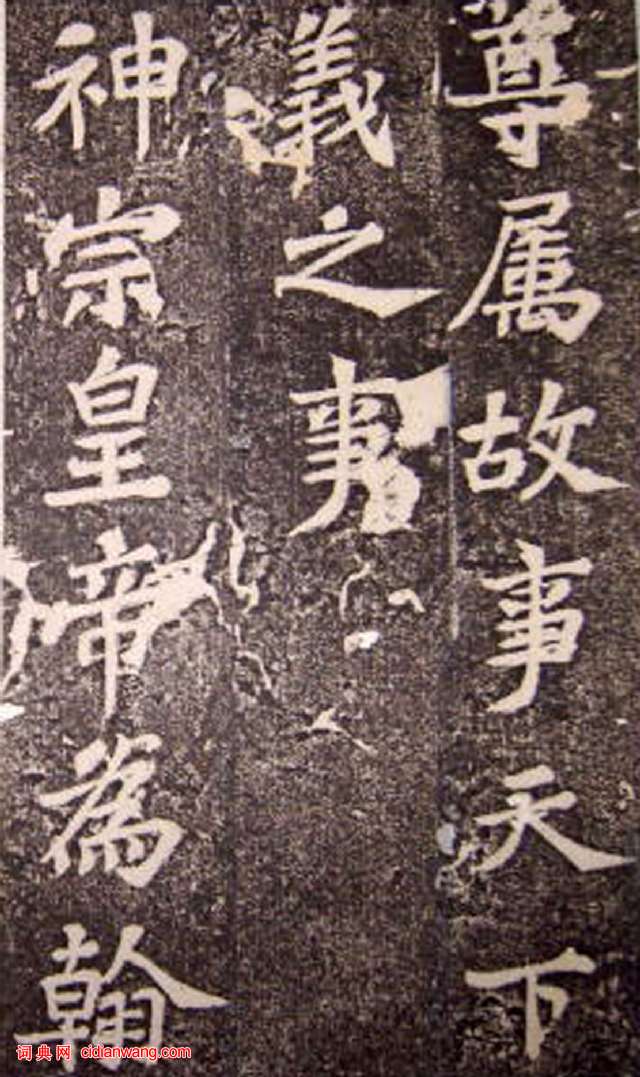 尊属故事天下
義之事
神宗皇帝為翰
词典网 cidianwang.com